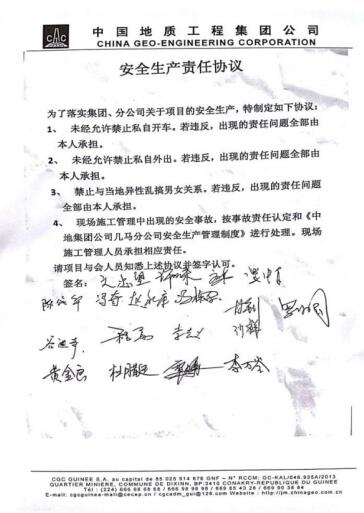 CGC
中国地质工程集团公司
CHINA GEO-ENGINEERING CORPORATION
安全生产责任协议
为了落实集团、分公司关于项目的安全生产，特制定如下协议：
1、 未经允许禁止私自开车。若违反，出现的责任问题全部由
本人承担。
2、 未经允许禁止私自外出。若违反，出现的责任问题全部由
本人承担。
3、 禁止与当地异性乱搞男女关系。若违反，出现的责任问题
全部由本人承担。
4、 现场施工管理中出现的安全事故，按事故责任认定和《中
地集团公司几马分公司安全生产管理制度》进行处理。现场
施工管理人员承担相应责任。
请项目与会人员知悉上述协议并签字认可。
签名：
黄金良 杜鹏廷 李万岺
CGC GUINEE S.A. au capital de 85 025 914 676 GNF – N° RCCM: GC-KAL/046.935A/2013
QUARTIER MINIERE, COMMUNE DE DIXINN, BP:3410 CONAKRY-REPUBLIQUE DU GUINEE
Tél : (224) 666 68 68 68 / 666 98 98 98 / 669 65 43 28 / 669 90 38 86
E-mail: cgcguinee-mali@cecep.cn / cgcadm_gui@126.com Website : http://jm.chinageo.cn